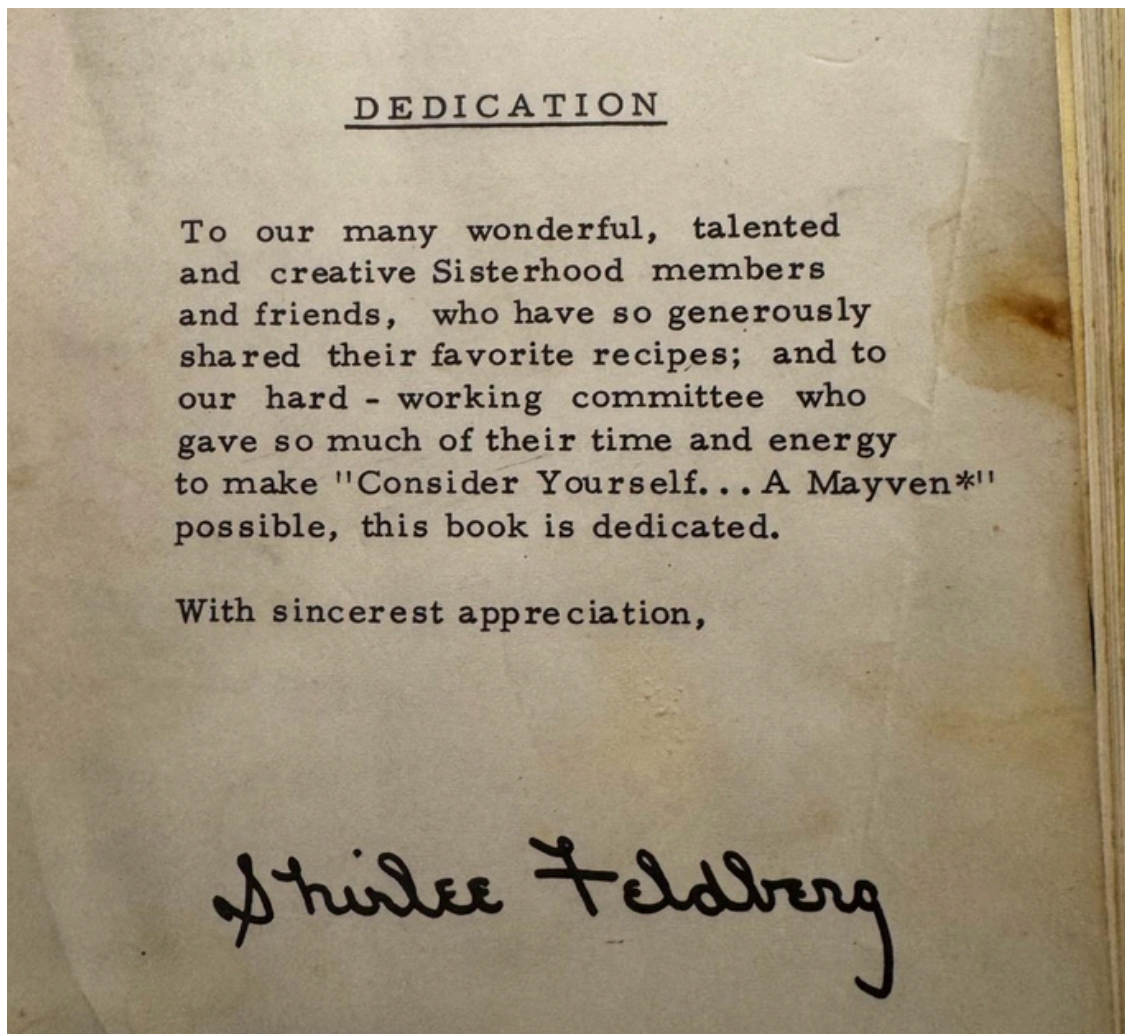 DEDICATION
To our many wonderful, talented
and creative Sisterhood members
and friends, who have so generously
shared their favorite recipes; and to
our hard - working committee who
gave so much of their time and energy
to make "Consider Yourself...A Mayven*"
possible, this book is dedicated.
With sincerest appreciation,
Shirlee Feldberg